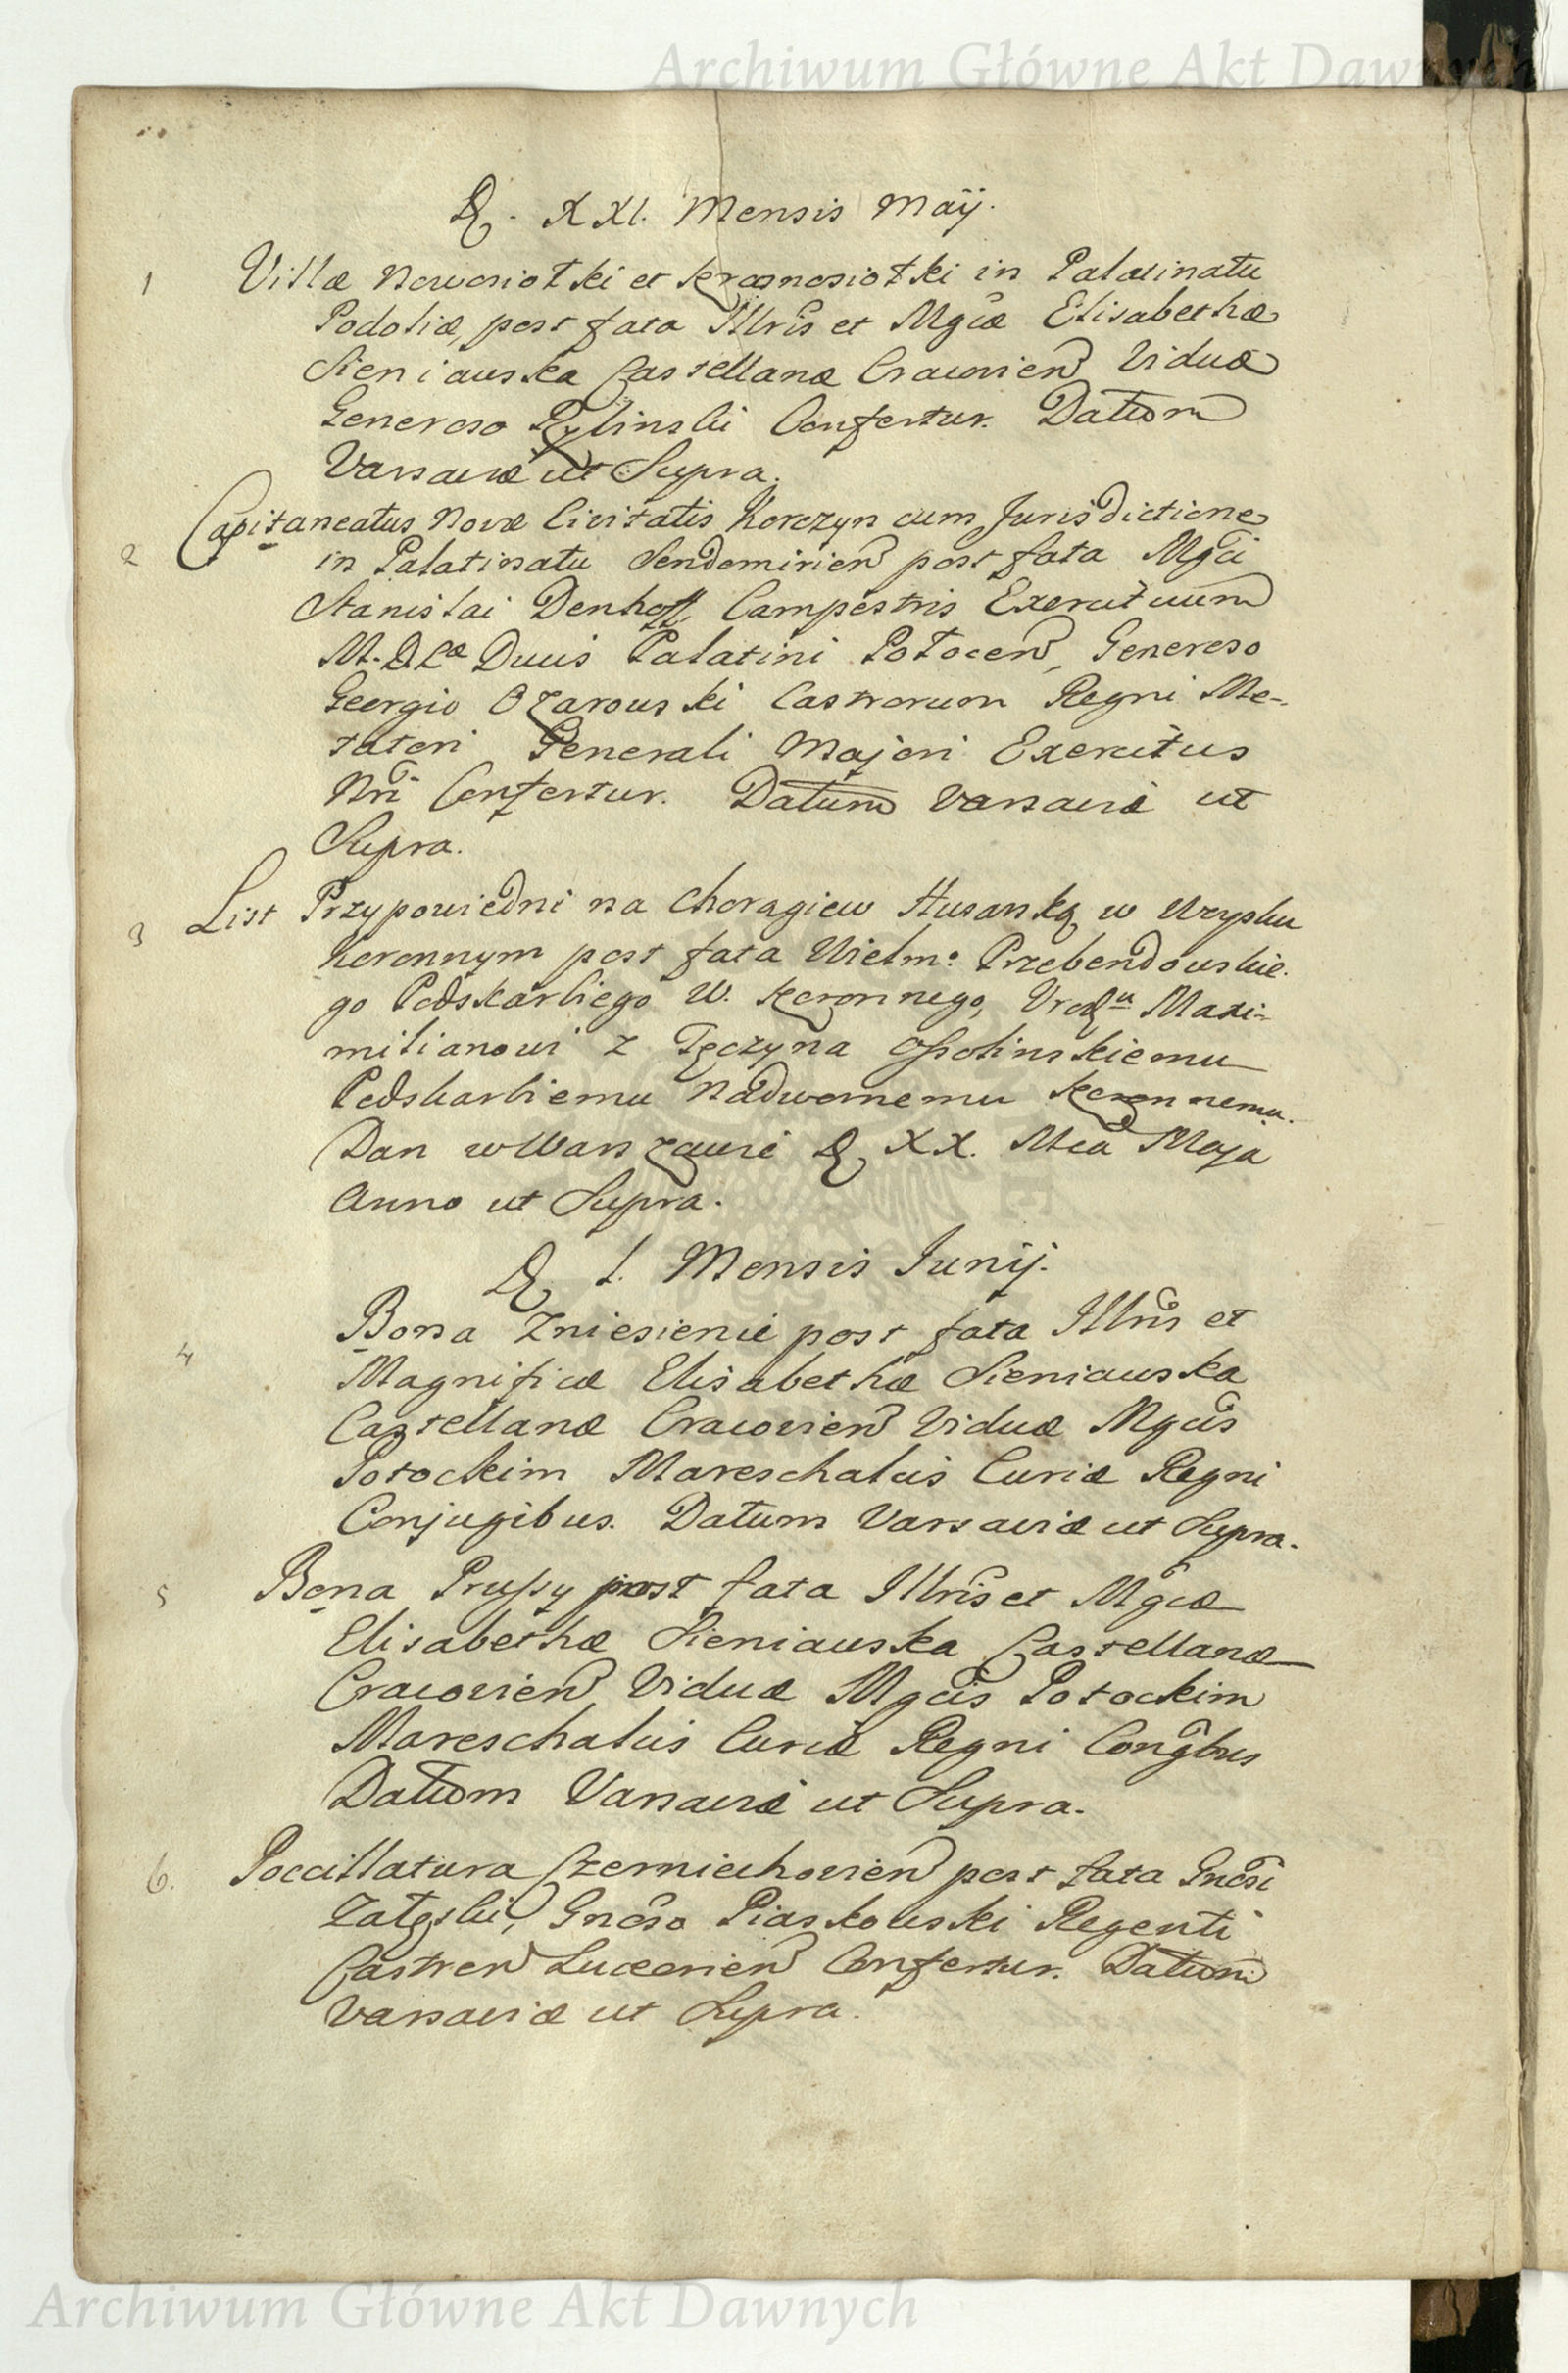 Archiwum Główne Akt Dawnych
D. XXI. Mensis Maij.
1 Villæ Nowosiołki et Krasnosiołki in Palatinatu
Podoliæ, post fata Illris et Mgcæ Elisabethæ
Sieniawska Castellanæ Cracovien Viduæ
Generoso Rylinski Confertur. Datum
Varsaviæ ut Supra.
2 Capitaneatus Novæ Civitatis Korczyn cum Jurisdictione
in Palatinatu Sendomirien post fata Mgci
Stanislai Denhoff, Campestris Exercituum
M. D. L. Ducis Palatini Połocen, Generoso
Georgio Ozarowski Castrorum Regni Me-
tatori Generali Majori Exercitus
Nri Confertur. Datum Varsaviæ ut
Supra.
3 List Przypowiedni na Choragiew Husarską w Woysku
Koronnym post fata Wielmo: Przebendowskie-
go Podskarbiego W. Koronnego, Urodu Maxi-
milianowi z Tęczyna Ossolinskiemu
Podskarbiemu Nadwornemu Koronnemu.
Dan w Warszawie D. XX. Mca Maja
Anno ut Supra.
D. I. Mensis Junij.
4 Bona Zniesienie post fata Illris et
Magnificæ Elisabethæ Sieniawska
Castellanæ Cracovien Viduæ Mgcis
Potockim Mareschalcis Curiæ Regni
Conjugibus. Datum Varsaviæ ut Supra.
5 Bona Prussy post fata Illris et Mgcæ
Elisabethæ Sieniawska Castellanæ
Cracovien Viduæ Mgcis Potockim
Mareschalcis Curiæ Regni Congbus
Datum Varsaviæ ut Supra.
6. Poccillatura Czerniechovien post fata Gnosi
Załęski, Gnoso Piaskowski Regenti
Castren Luceorien Confertur. Datum
Varsaviæ ut Supra.
Archiwum Główne Akt Dawnych